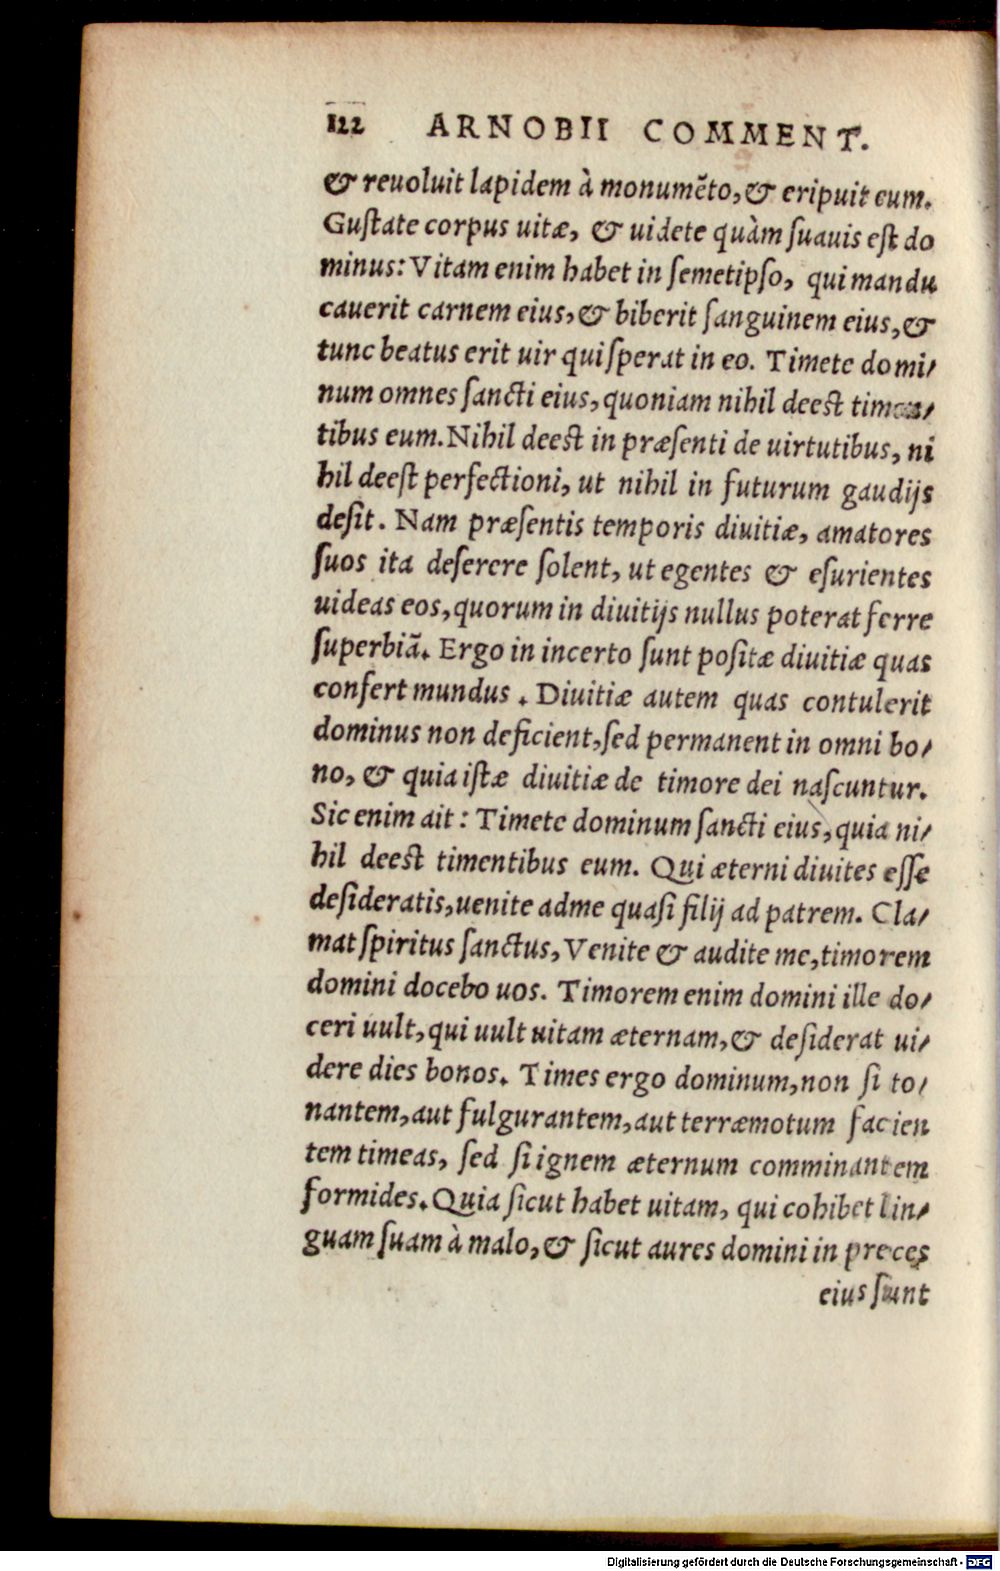 122 ARNOBII COMMENT.
& reuoluit lapidem à monumẽto, & eripuit eum.
Guſtate corpus uitæ, & uidete quàm ſuauis eſt do
minus: Vitam enim habet in ſemetipſo, qui mandu
cauerit carnem eius, & biberit ſanguinem eius, &
tunc beatus erit uir qui ſperat in eo. Timete domi/
num omnes ſancti eius, quoniam nihil deeſt timen/
tibus eum. Nihil deeſt in præſenti de uirtutibus, ni
hil deeſt perfectioni, ut nihil in futurum gaudijs
deſit. Nam præſentis temporis diuitiæ, amatores
ſuos ita deſerere ſolent, ut egentes & eſurientes
uideas eos, quorum in diuitijs nullus poterat ferre
ſuperbiã. Ergo in incerto ſunt poſitæ diuitiæ quas
confert mundus. Diuitiæ autem quas contulerit
dominus non deficient, ſed permanent in omni bo/
no, & quia iſtæ diuitiæ de timore dei naſcuntur.
Sic enim ait: Timete dominum ſancti eius, quia ni/
hil deeſt timentibus eum. Qui æterni diuites eſſe
deſideratis, uenite ad me quaſi filij ad patrem. Cla/
mat ſpiritus ſanctus, Venite & audite me, timorem
domini docebo uos. Timorem enim domini ille do/
ceri uult, qui uult uitam æternam, & deſiderat ui/
dere dies bonos. Times ergo dominum, non ſi to/
nantem, aut fulgurantem, aut terræmotum facien
tem timeas, ſed ſi ignem æternum comminantem
formides. Quia ſicut habet uitam, qui cohibet lin/
guam ſuam à malo, & ſicut aures domini in preces
eius ſunt
Digitalisierung gefördert durch die Deutsche Forschungsgemeinschaft - DFG